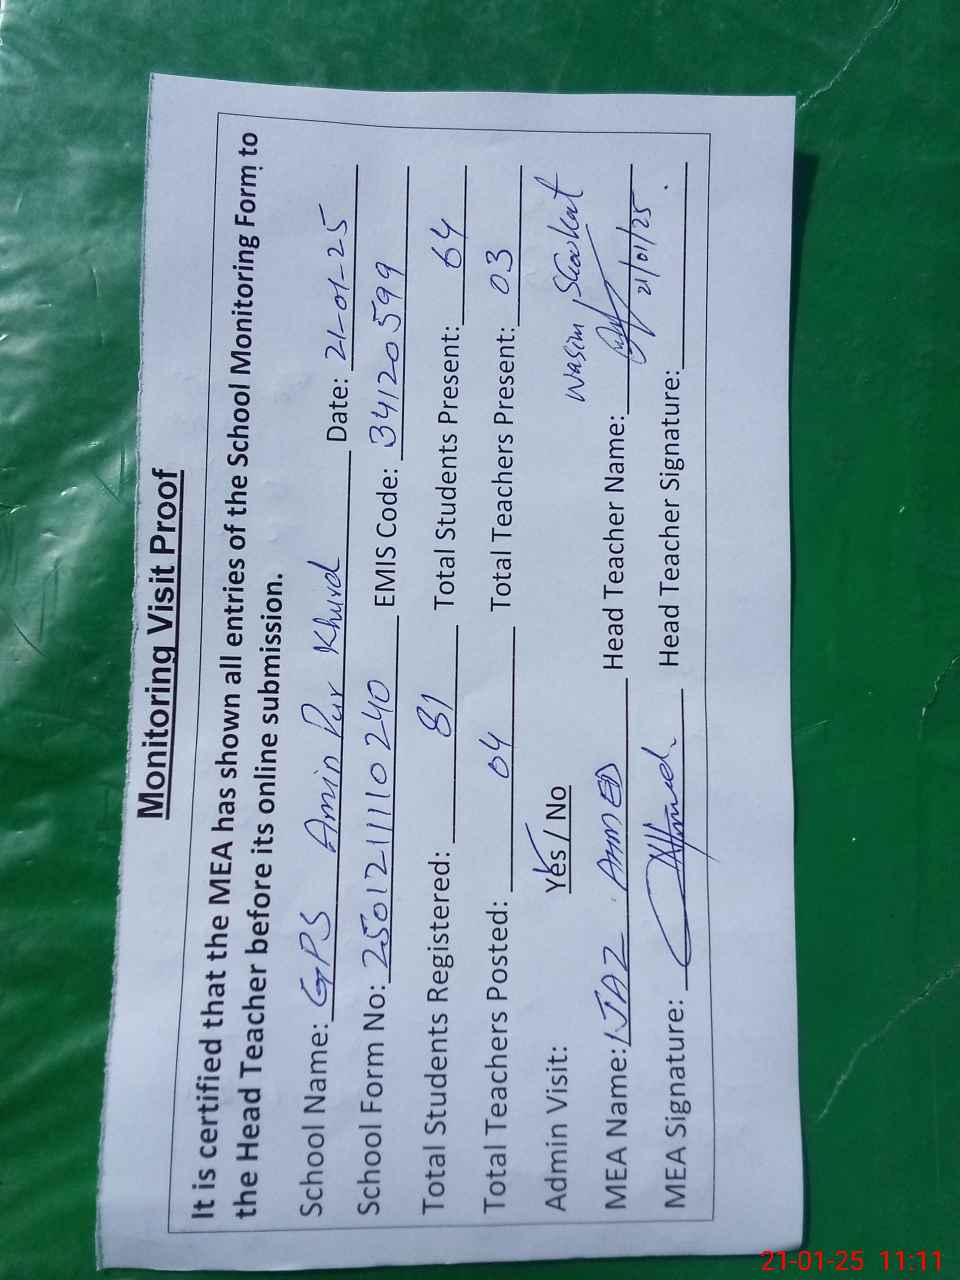 Monitoring Visit Proof
It is certified that the MEA has shown all entries of the School Monitoring Form to
the Head Teacher before its online submission.
School Name: GPS Amin Pur Khurd Date: 21-01-25
School Form No: 2501211110240 EMIS Code: 34120599
Total Students Registered: 81 Total Students Present: 64
Total Teachers Posted: 04 Total Teachers Present: 03
Admin Visit: Yes / No Wasim Shaukat
MEA Name: IJAZ AHMED Head Teacher Name:
21/01/25
MEA Signature: Ahmed Head Teacher Signature:
21-01-25 11:11